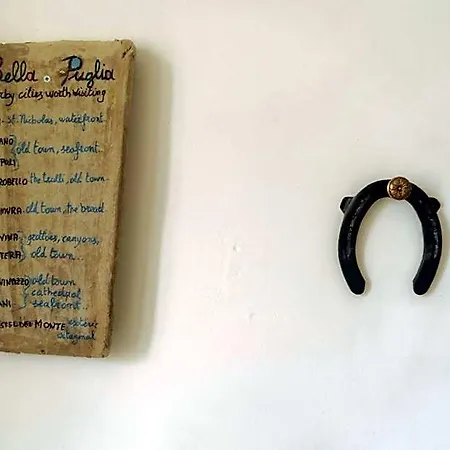 Bella Puglia
rby cities worth visiting
St. Nicholas, waterfront
ANO
old town, seafront.
POLI
ROBELLO the trulli, old town
MURA old town, the bread
VINA grottoes, canyons,
TERA old town.
VINAZZO old town
cathedral
ANI seafront.
STEL DEL MONTE esoteric
octagonal